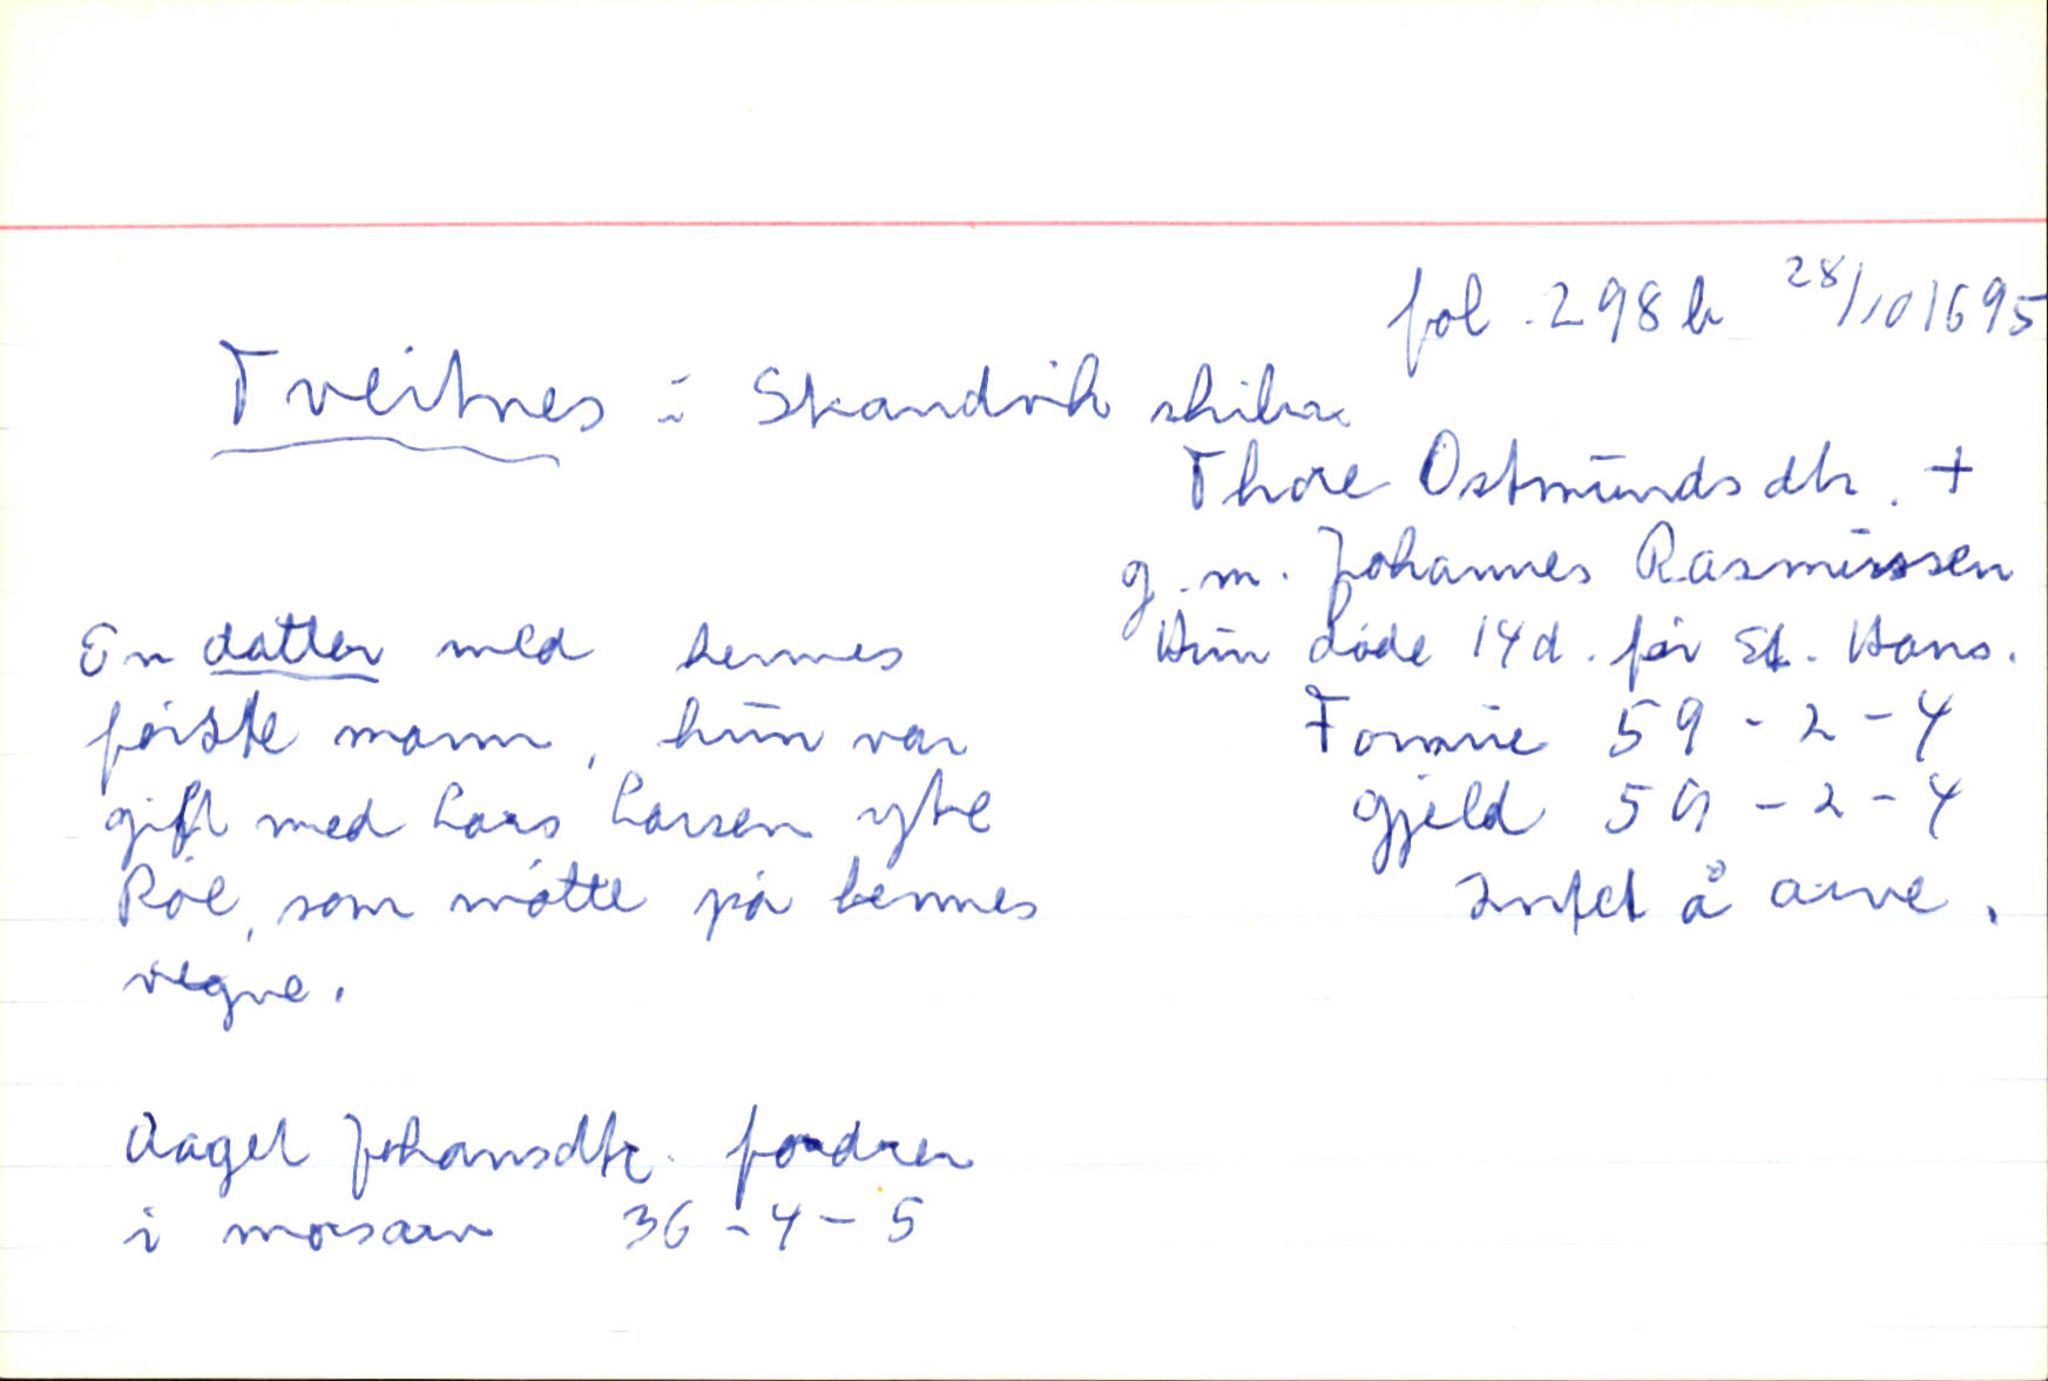 fol. 298 b 28/10 1695
Tveitnes i Skandvik skibr.
Thore Ostmundsdtr. +
g. m. Johannes Rasmussen
Hun døde 14 d. før St. Hans.
Formue 59 - 2 - 4
Gjeld 59 - 2 - 4
Intet å arve.
En datter med hennes
første mann, hun var
gift med Lars Larsen ytre
Røe, som møtte på hennes
vegne.
Aagel Johansdtr. fordrer
i morsarv 36 - 4 - 5